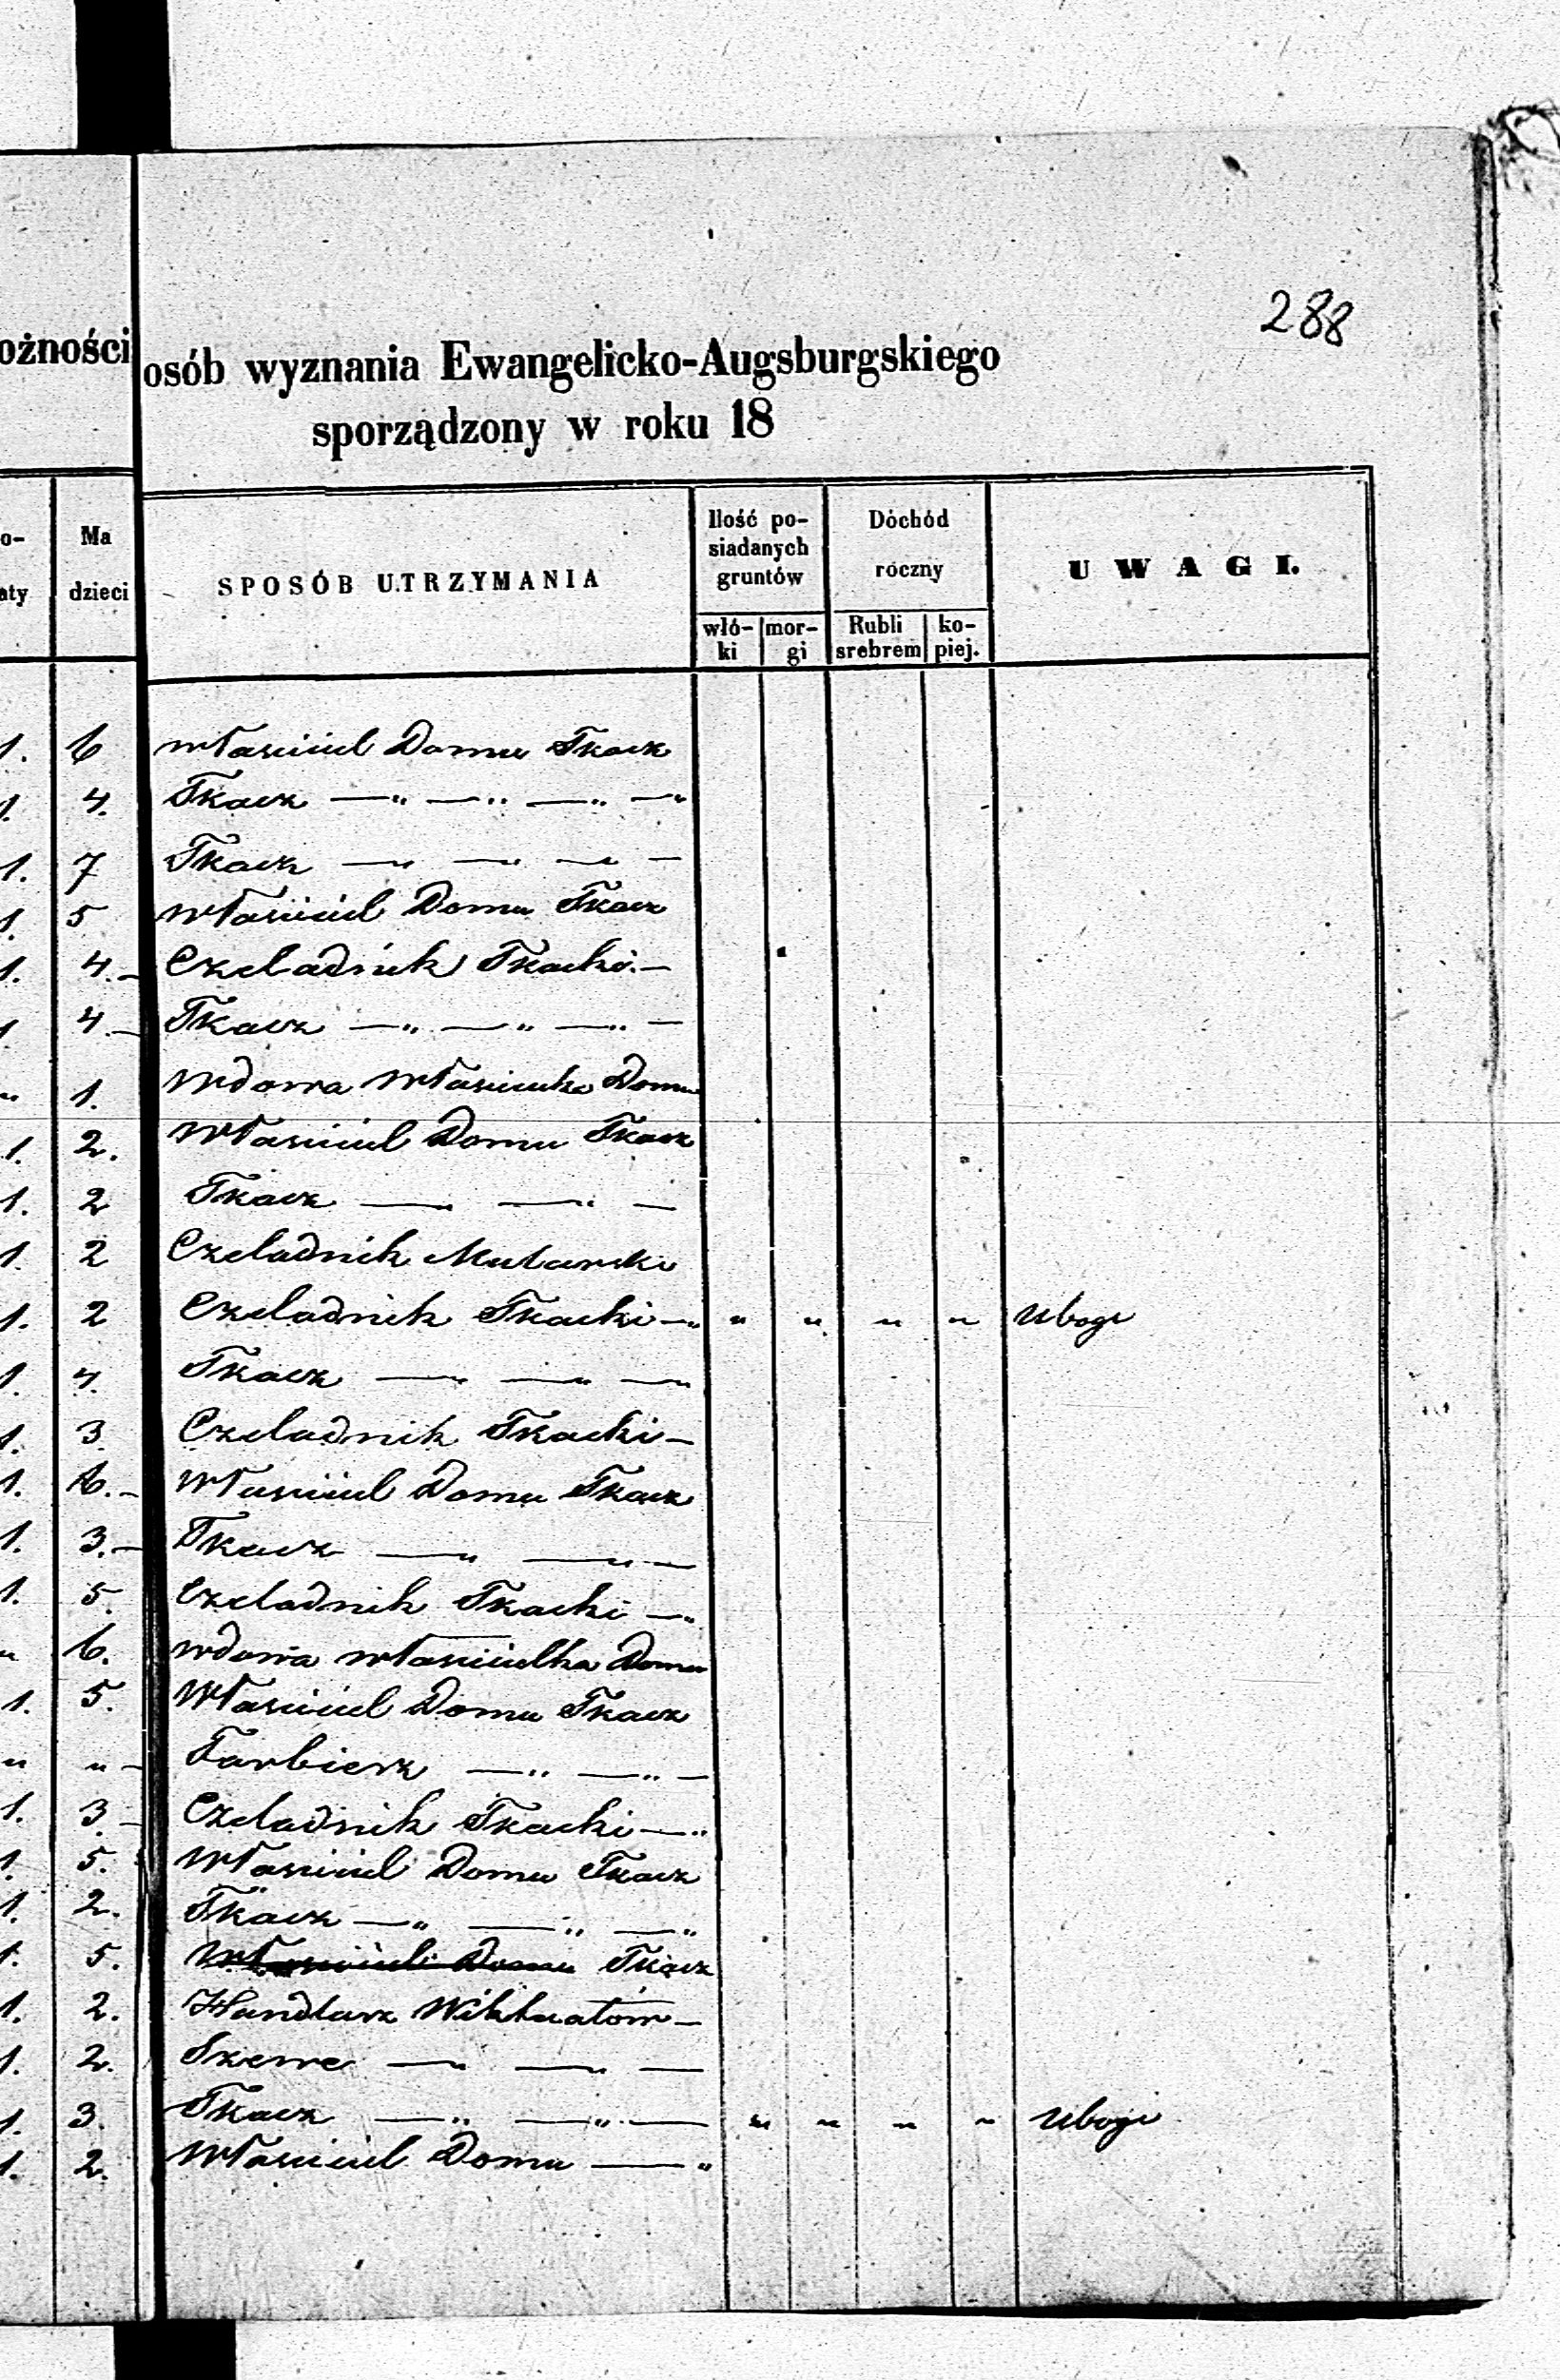 288
ożności osób wyznania Ewangelicko-Augsburgskiego
sporządzony w roku 18
o- Ma SPOSÓB UTRZYMANIA Ilość po- Dochód UWAGI.
siadanych
aty dzieci gruntów roczny
włó- mor- Rubli ko-
ki gi srebrem piej.
1. 6 własciciel Domu Tkacz
1. 4. Tkacz —„ —„ —„ —„
1. 7 Tkacz —„ —„ —„ —
1. 5 własciciel Domu Tkacz
1. 4.- Czeladnik Tkacki.—
1 4.- Tkacz —„ —„ —„ —
„ 1. Wdowa Domu
1. 2. Własciciel Domu Tkacz
1. 2 Tkacz —„ —„ —
1. 2 Czeladnik Mularski
1. 2 Czeladnik Tkacki —„ „ „ „ „ Ubogi
1. 4. Tkacz —„ —„ —„
1. 3 Czeladnik Tkacki —
1. 6.- Własciciel Domu Tkacz
1. 3.- Tkacz —„ —„ —
1. 5. Czeladnik Tkacki —„
„ 6. wdowa włascicielka Domu
1. 5. Własciciel Domu Tkacz
„ „ - Farbierz —„ —„ —
1. 3 - Czeladnik Tkacki —„
1. 5. Własciciel Domu Tkacz
1. 2. Tkacz —„ —„ —„
1. 5. Własciciel Domu Tkacz
1. 2. Handlarz Wiktuałów —
1. 2. Szewc —„ —„ —
1. 3. Tkacz —„ —„ — „ „ „ „ Ubogi
1. 2. Własciciel Domu —„